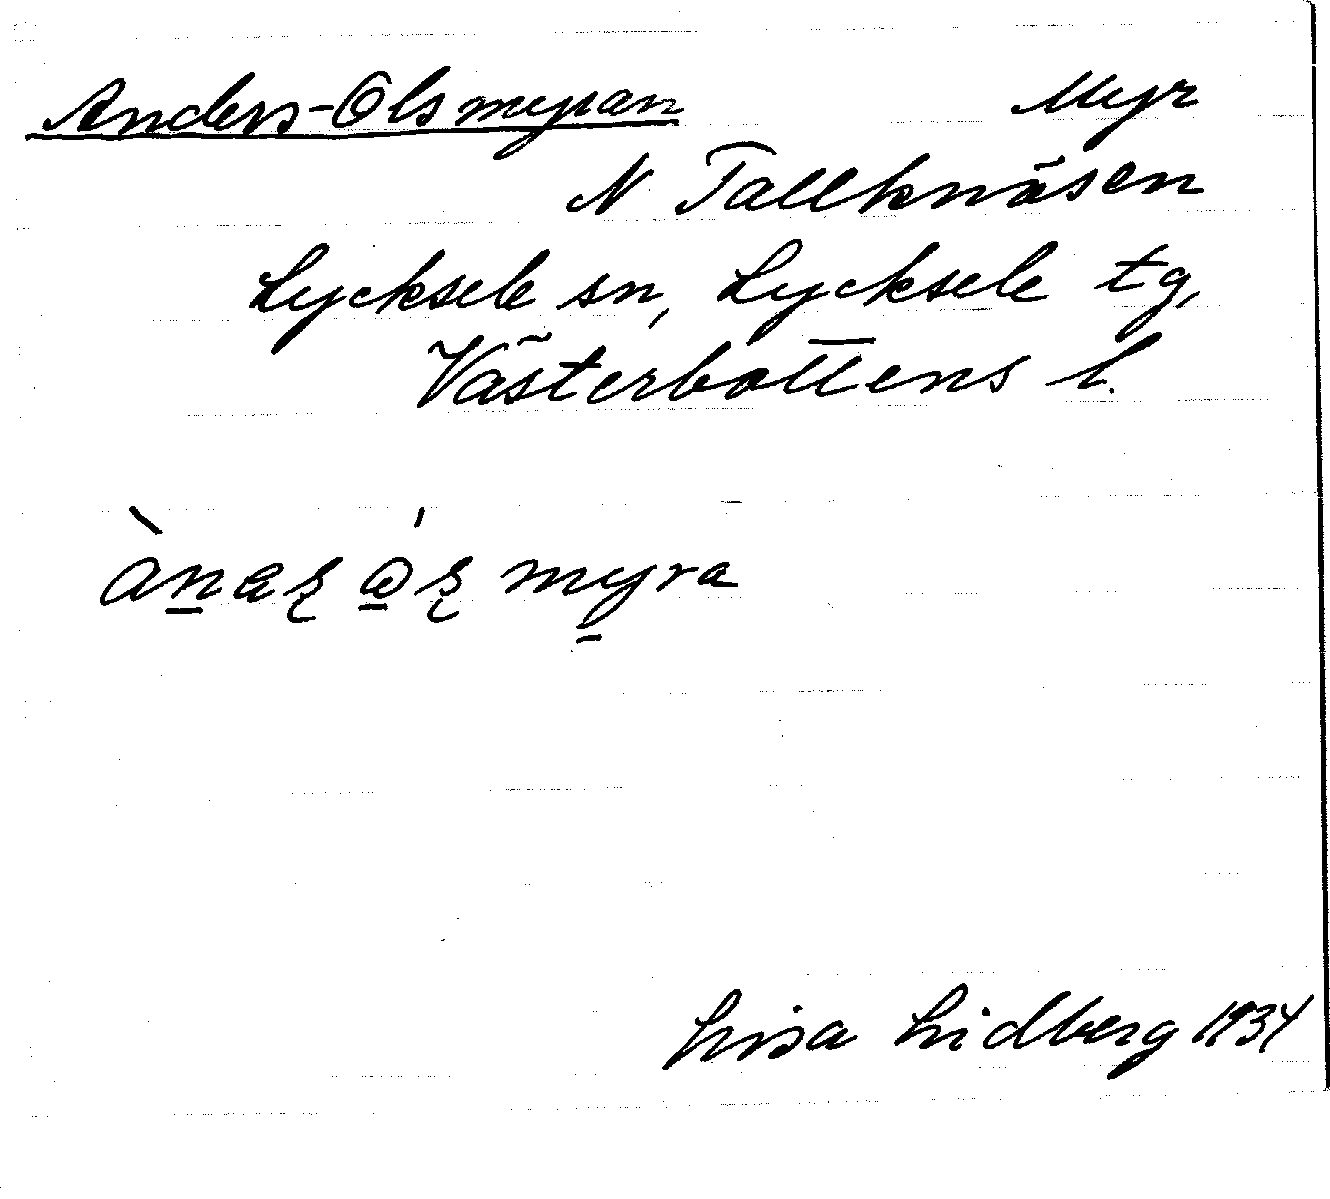 Anders-Olsmyran Myr
N Tallknäsen
Lycksele sn, Lycksele tg,
Västerbottens l.
myra
Lisa Lidberg 1934